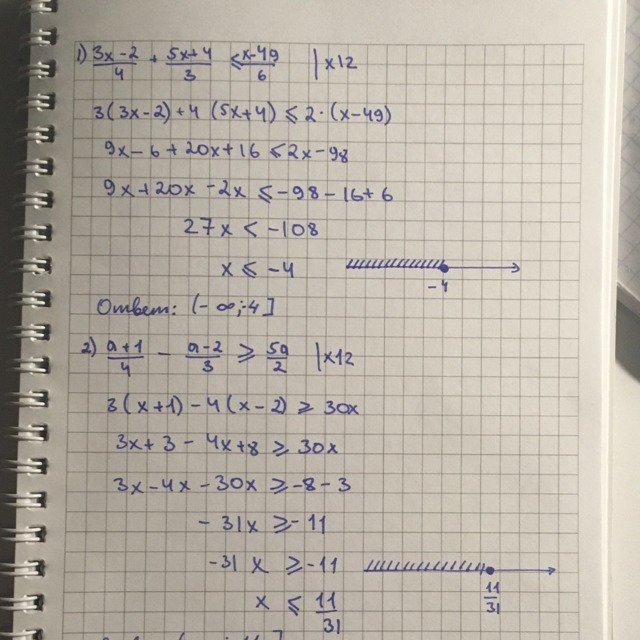 1) (3x-2)/4 + (5x+4)/3 ≤ (x-49)/6 |x12
3(3x-2)+4(5x+4)≤2·(x-49)
9x-6+20x+16≤2x-98
9x+20x-2x≤-98-16+6
27x<-108
x≤-4
-4
Ответ: (-∞;-4]
2) (a+1)/4 - (a-2)/3 ≥ 5a/2 |x12
3(x+1)-4(x-2)≥30x
3x+3-4x+8≥30x
3x-4x-30x≥-8-3
-31x≥-11
-31x≥-11
11/31
x≤11/31